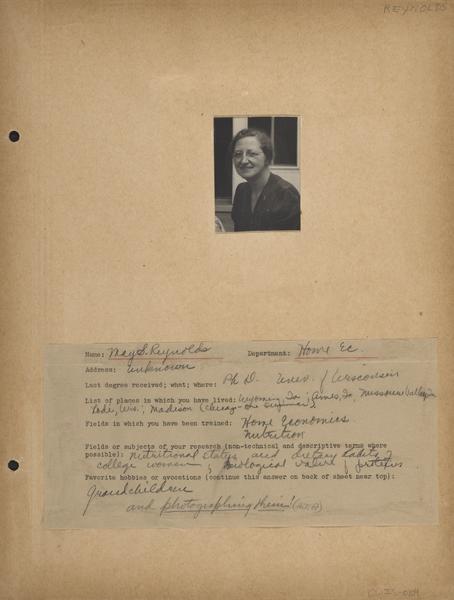 REYNOLDS
Name: May S. Reynolds Department: Home Ec.
Address: unknown
Last degree received; what; where: Ph D. Univ. of Wisconsin
List of places in which you have lived: Wyoming, Ia; Ames, Ia, Missouri Valley, Ia
Lodi, Wis.; Madison (Chicago - one summer)
Fields in which you have been trained: Home Economics
Nutrition
Fields or subjects of your research (non-technical and descriptive terms where
possible): Nutritional status and dietary habits of
college women; Biological value of proteins
Favorite hobbies or avocations (continue this answer on back of sheet near top):
Grandchildren
and photographing them!